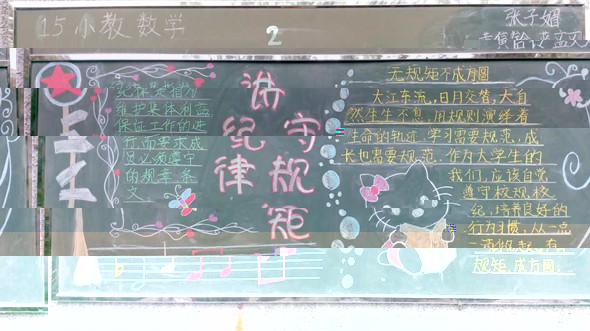 15 小教 数学
2
张子媚
讲
纪律
守
规矩
维护集体利益
保证工作的进
行而要求成
员必须遵守
的规章 条
文
无规矩不成方圆
大江东流,日月交替,大自
然生生不息,用规则演绎着
生命的轨迹,学习需要规范,成
长也需要规范.作为大学生的
我们,应该自觉
遵守校规,校
纪,培养良好的
行为习惯,从一点
规矩,成方圆.